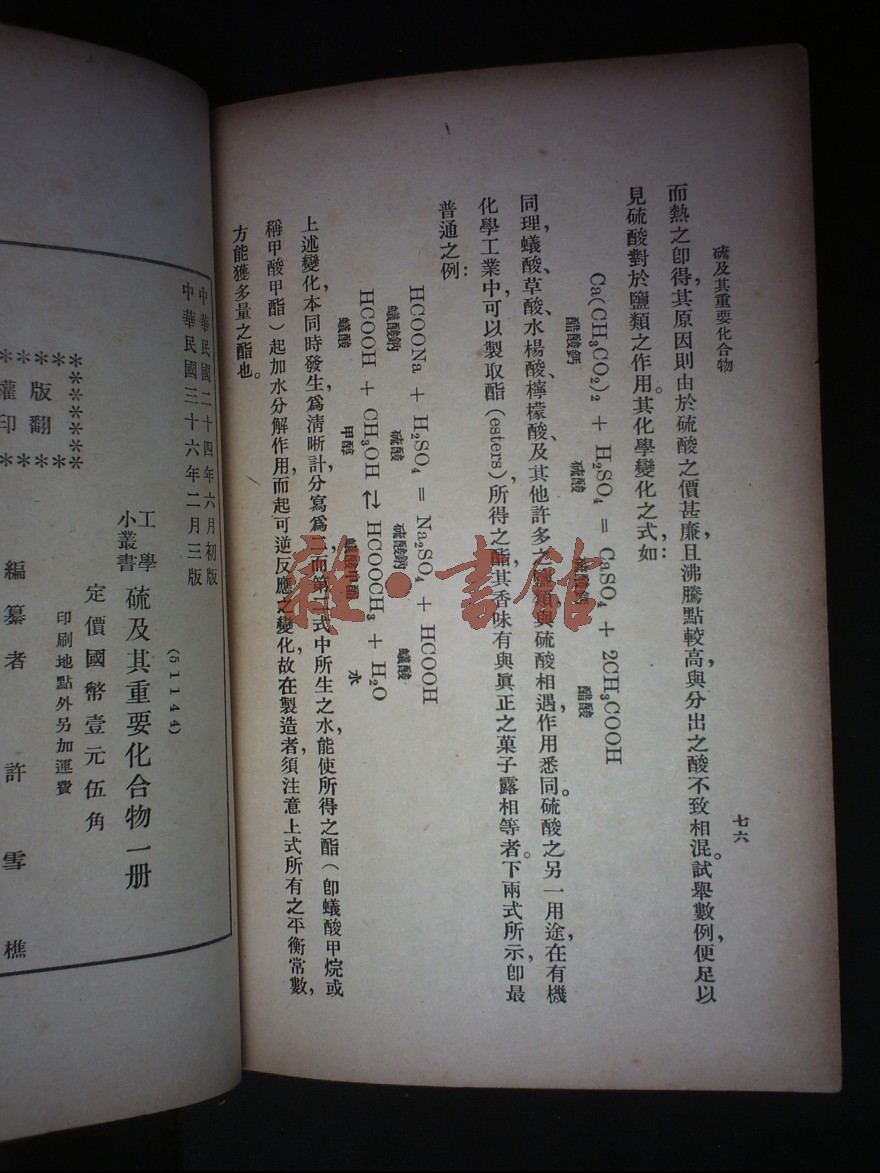 硫及其重要化合物
七六
而熱之卽得，其原因則由於硫酸之價甚廉，且沸騰點較高，與分出之酸不致相混。試舉數例，便足以
見硫酸對於鹽類之作用。其化學變化之式，如：
Ca(CH₃CO₂)₂ + H₂SO₄ = CaSO₄ + 2CH₃COOH
醋酸鈣 硫酸 醋酸
同理蟻酸、草酸、水楊酸、檸檬酸、及其他許多之鹽類，與硫酸相遇，作用悉同。硫酸之另一用途，在有機
化學工業中，可以製取酯(esters)，所得之酯，其香味有與眞正之菓子露相等者。下兩式所示，卽最
普通之例：
HCOONa + H₂SO₄ = Na₂SO₄ + HCOOH
蟻酸鈉 硫酸 硫酸鈉 蟻酸
HCOOH + CH₃OH ⇄ HCOOCH₃ + H₂O
蟻酸 甲醇 水
上述變化，本同時發生，爲淸晰計，分寫爲二，而第二式中所生之水，能使所得之酯（卽蟻酸甲烷或
稱甲酸甲酯）起加水分解作用，而起可逆反應之變化，故在製造者，須注意上式所有之平衡常數，
方能獲多量之酯也。
中華民國二十四年六月初版
中華民國三十六年二月三版
版翻
權印
(51144)
工學
小叢書
硫及其重要化合物一册
定價國幣壹元伍角
印刷地點外另加運費
編纂者 許雪樵
雜·書館